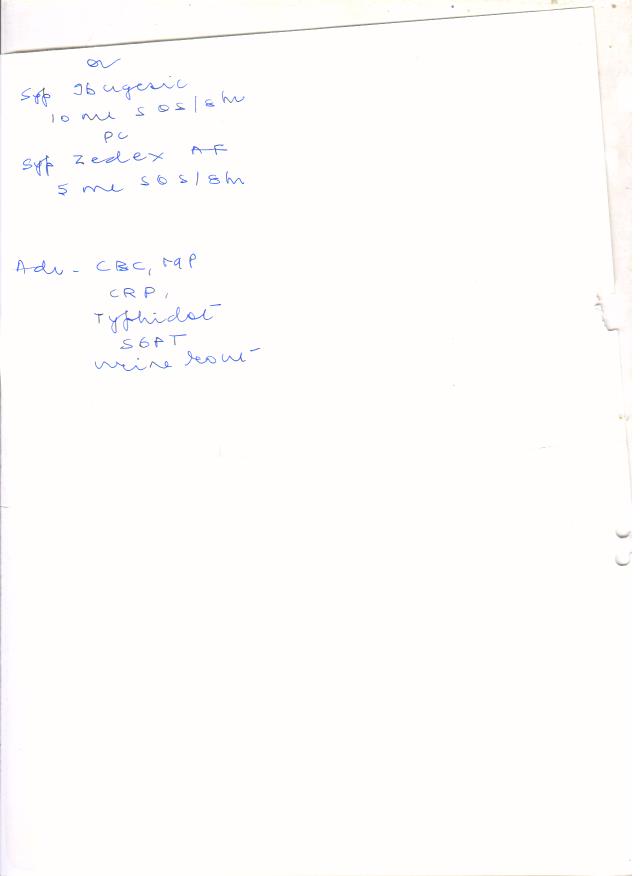 or
Syp Ibugesic
10 ml SOS/8hr
PC
Syp Zedex AF
5 ml SOS/8hr
Adv - CBC, MP
CRP,
Typhidot
SGPT
urine rout